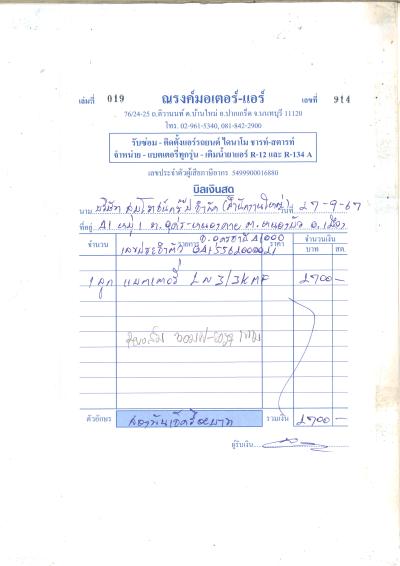 เล่มที่ 019 ณรงค์มอเตอร์-แอร์ เลขที่ 914
76/24-25 ถ.ติวานนท์ ต.บ้านใหม่ อ.ปากเกร็ด จ.นนทบุรี 11120
โทร. 02-961-5340, 081-842-2900
รับซ่อม - ติดตั้งแอร์รถยนต์ ไดนาโม ชาร์ท-สตารท์
จำหน่าย - แบตเตอรี่ทุกรุ่น - เติมน้ำยาแอร์ R-12 และ R-134 A
เลขประจำตัวผู้เสียภาษีอากร 5499900016880
บิลเงินสด
นาม บริษัท จำกัด (สำนักงานใหญ่) วันที่ 27-9-67
ที่อยู่ 41 หมู่ 1 ถ.อุดร-หนองคาย ต.หนองบัว อ.เมือง
จ.อุดรธานี 41000
จำนวน รายการ ราคา จำนวนเงิน
เลขประจำตัว 0415562000021
บาท สต.
1 ลูก แบตเตอรี่ LN 3/3K 2700 -
ตัวอักษร สองพันเจ็ดร้อยบาท รวมเงิน 2700 -
ผู้รับเงิน